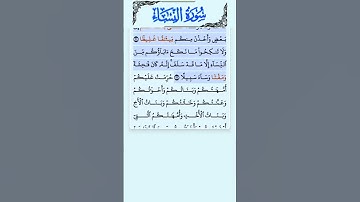 سُورَةُ النِّسَاءِ
بَعْضٍ وَأَخَذْنَ مِنكُم مِّيثَاقًا غَلِيظًا ۝
وَلَا تَنكِحُوا مَا نَكَحَ ءَابَاؤُكُم مِّنَ
النِّسَاءِ إِلَّا مَا قَدْ سَلَفَ إِنَّهُ كَانَ فَاحِشَةً
وَمَقْتًا وَسَاءَ سَبِيلًا ۝ حُرِّمَتْ عَلَيْكُمْ
أُمَّهَاتُكُمْ وَبَنَاتُكُمْ وَأَخَوَاتُكُمْ
وَعَمَّاتُكُمْ وَخَالَاتُكُمْ وَبَنَاتُ الْأَخِ
وَبَنَاتُ الْأُخْتِ وَأُمَّهَاتُكُمُ الَّتِي